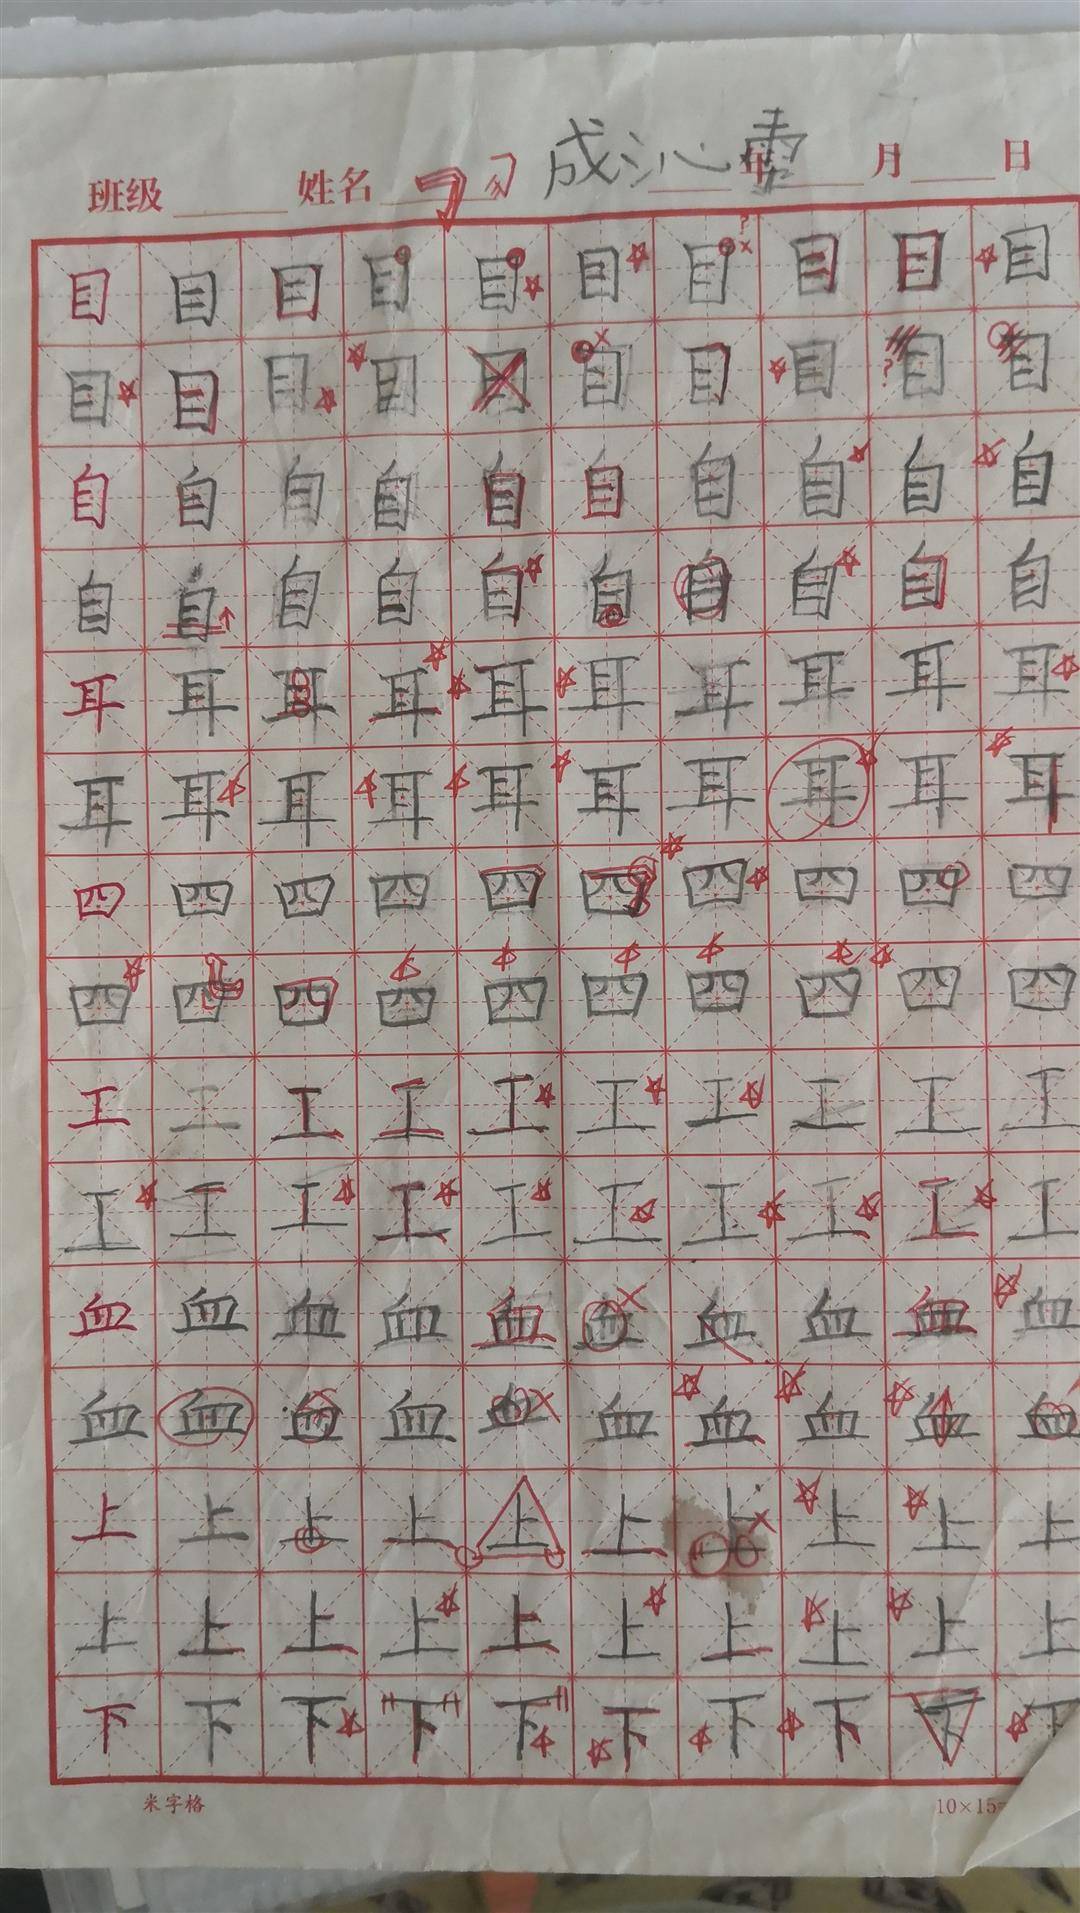 班级 姓名 成沁 年 月 日
目目目目目目目目目目
目目目目目目目目目目
自自自自自自自自自自
自自自自自自自自自自
耳耳耳耳耳耳耳耳耳耳
耳耳耳耳耳耳耳耳耳耳
四四四四四四四四四四
四四四四四四四四四四
工工工工工工工工工工
工工工工工工工工工工
血血血血血血血血血血
血血血血血血血血血血
上上上上上上上上上上
上上上上上上上上上上
下下下下下下下下下下
米字格 10×15